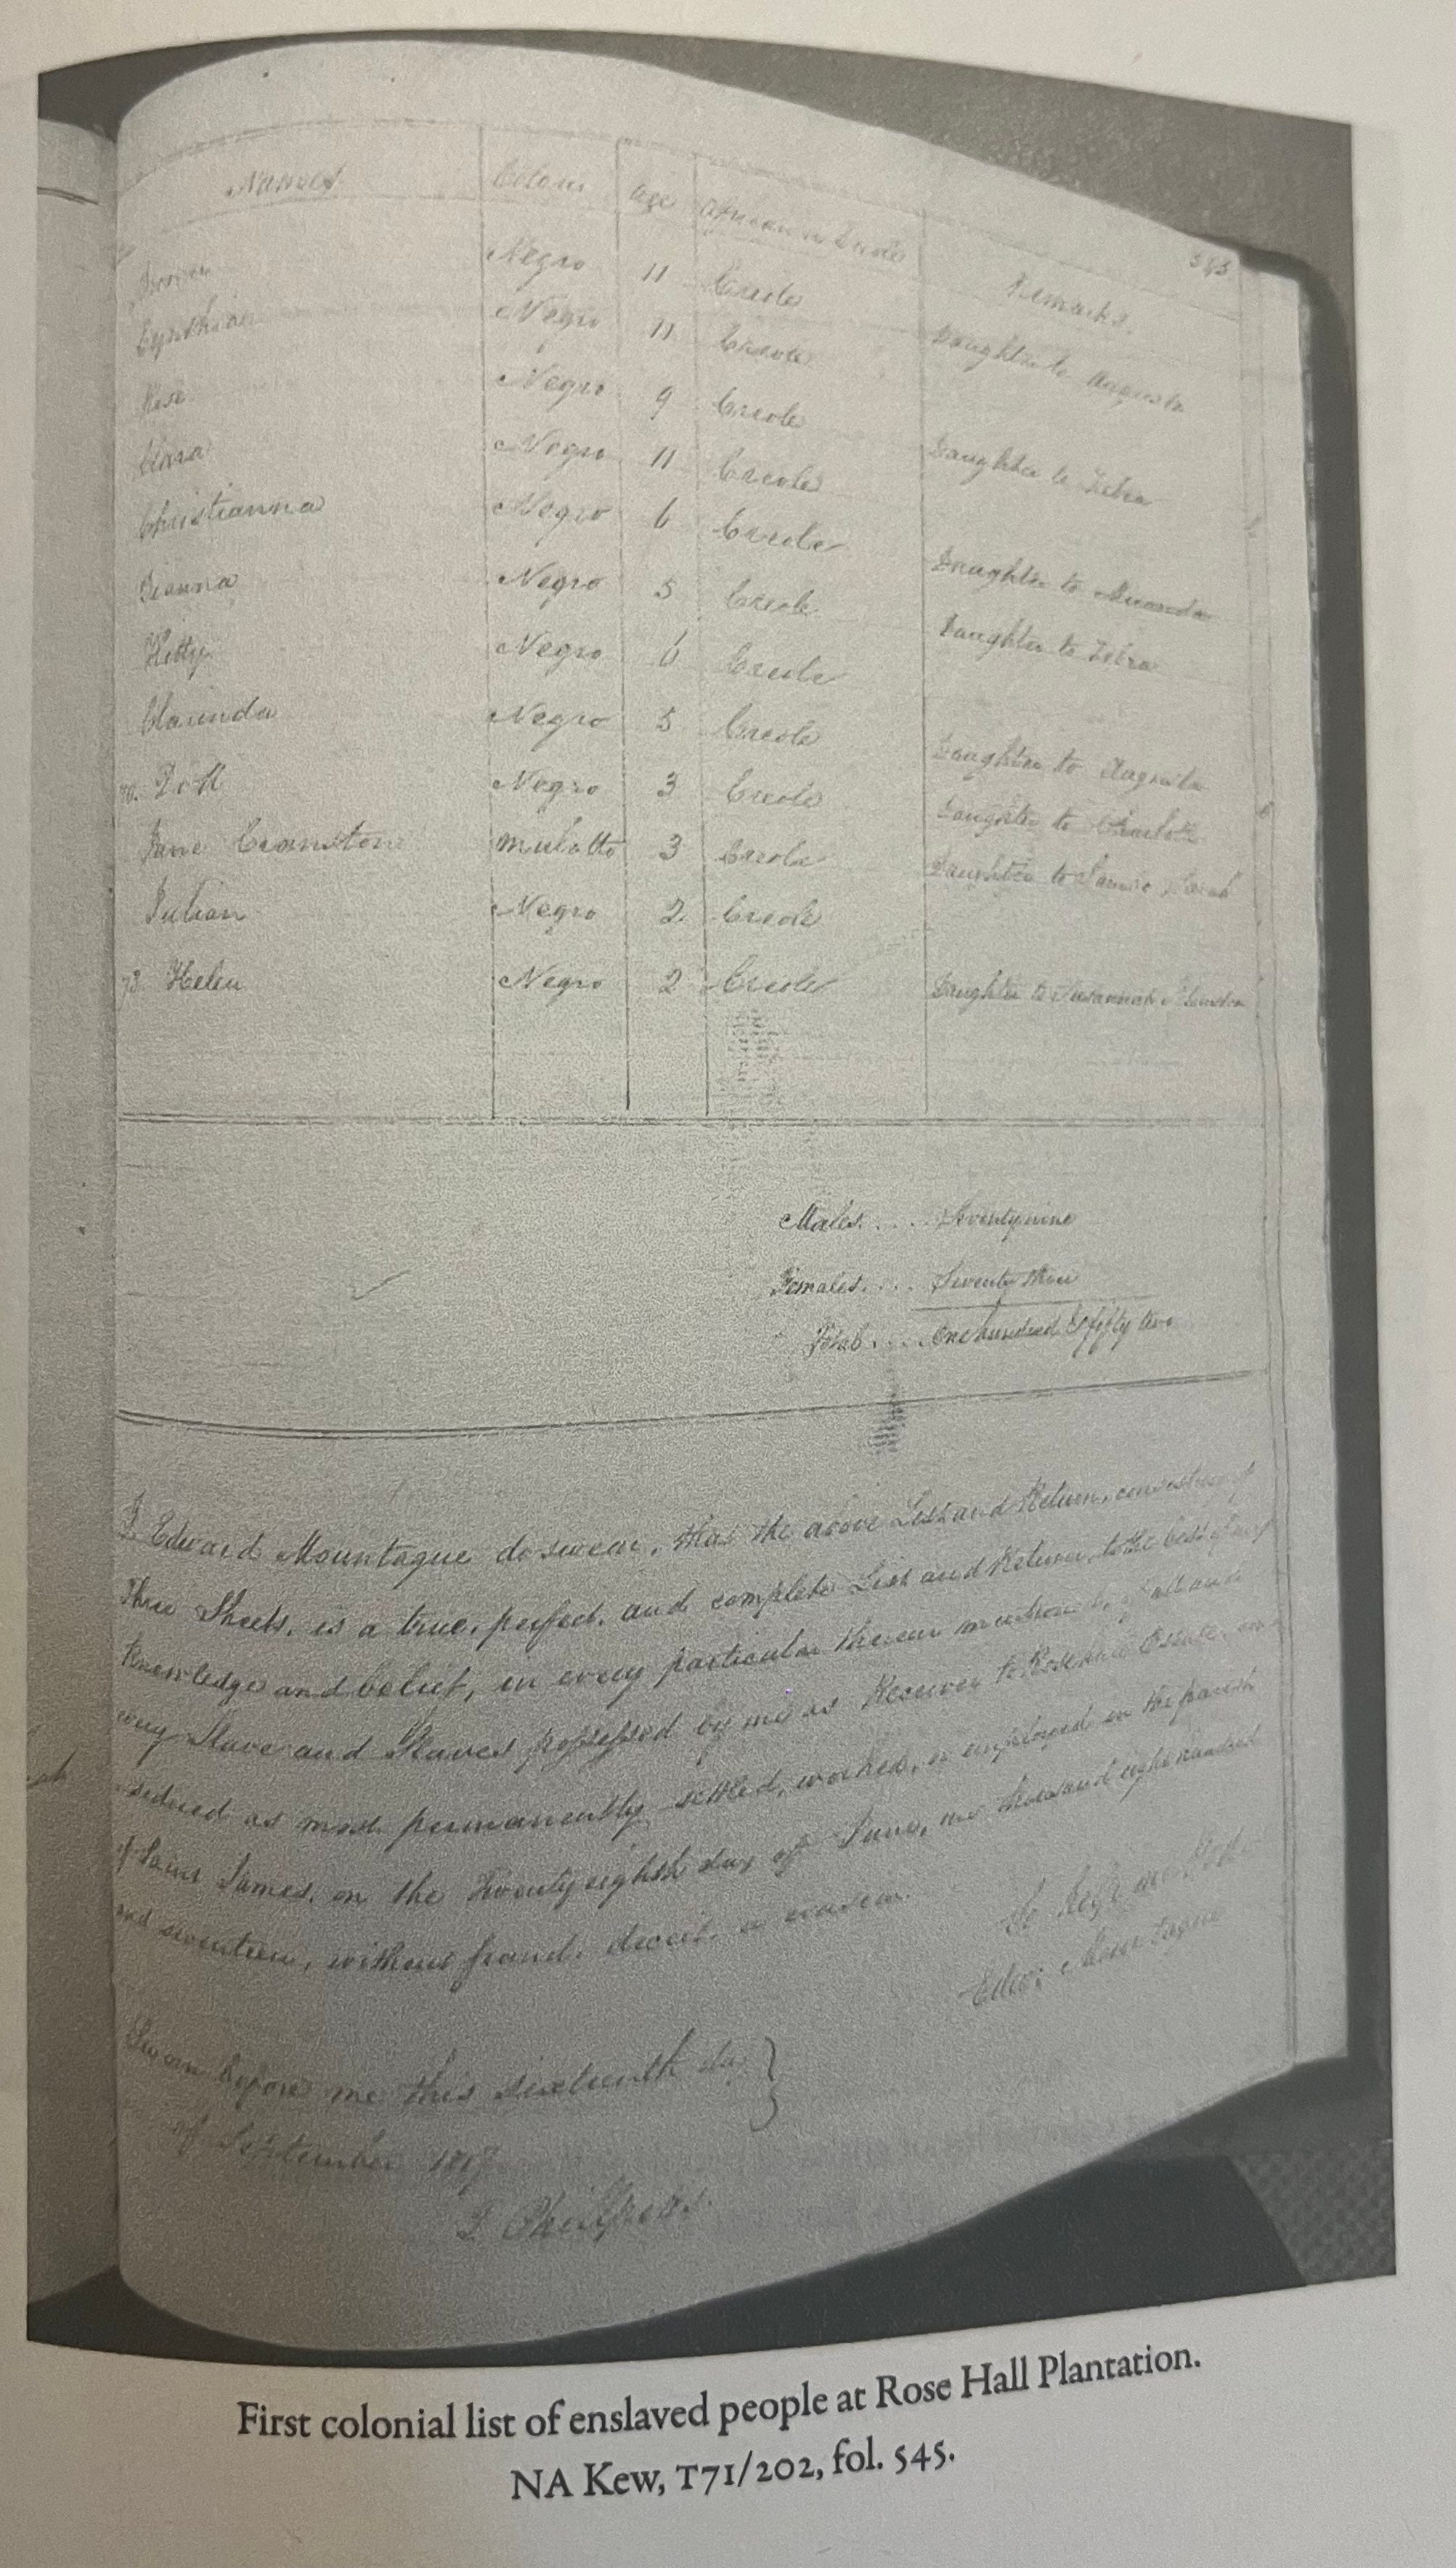 Names Colour Age African or Creole Remarks.
Negro 11 Creole
Cynthia Negro 11 Creole Daughter to Augusta
Rose Negro 9 Creole
Clara Negro 11 Creole Daughter to Zebra
Christianna Negro 6 Creole
Negro 5 Creole Daughter to
Kitty Negro 6 Creole Daughter to Zebra
Clarinda Negro 5 Creole
Doll Negro 3 Creole Daughter to
Jane Cranston mulatto 3 Creole Daughter to Charlotte
Julian Negro 2 Creole Daughter to
73. Helen Negro 2 Creole Daughter to Susannah
Males .... Seventy nine
Females .... Seventy three
Total .... One hundred & fifty two
I Edward Mountague do swear, that the above List and Return, consisting of
Three Sheets, is a true, perfect, and complete List and Return, to the best of my
Knowledge and belief, in every particular therein mentioned, of all and
every Slave and Slaves possessed by me as Receiver to Rose Hall Estate,
as most permanently settled, worked, or employed in the parish
of Saint James, on the Twenty eighth day of June, one thousand eight hundred
and seventeen, without fraud, deceit, or evasion.
So help me God
Edw: Mountague
Sworn before me this sixteenth day
of September 1817
First colonial list of enslaved people at Rose Hall Plantation.
NA Kew, T71/202, fol. 545.